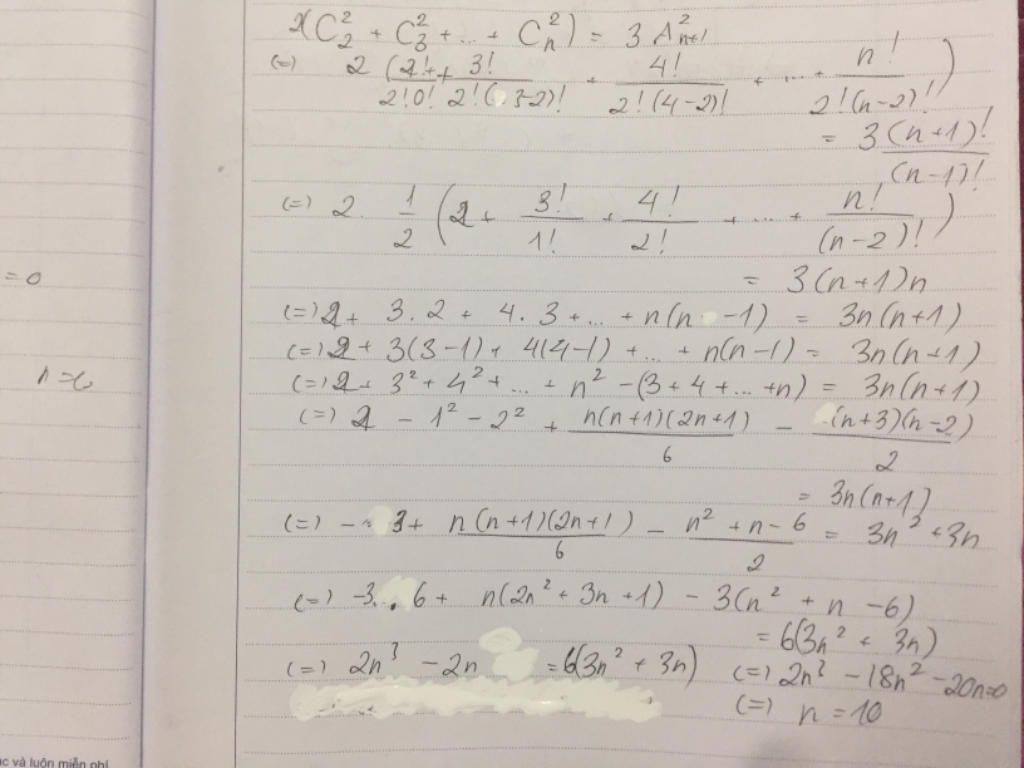 2(C₂² + C₃² + ... + Cₙ²) = 3 A²ₙ₊₁
(=) 2 (2!/2!0! + 3!/2!(3-2)! + 4!/2!(4-2)! + ... + n!/2!(n-2)!)
= 3 (n+1)!/(n-1)!
(=) 2. 1/2 (2 + 3!/1! + 4!/2! + ... + n!/(n-2)!)
= 3(n+1)n
= 0
(=) 2 + 3.2 + 4.3 + ... + n(n-1) = 3n(n+1)
(=) 2 + 3(3-1) + 4(4-1) + ... + n(n-1) = 3n(n+1)
(=) 2 + 3² + 4² + ... + n² - (3+4+...+n) = 3n(n+1)
(=) 2 - 1² - 2² + n(n+1)(2n+1)/6 - (n+3)(n-2)/2
= 3n(n+1)
(=) -3 + n(n+1)(2n+1)/6 - (n²+n-6)/2 = 3n² + 3n
(=) -3.6 + n(2n² + 3n + 1) - 3(n² + n - 6)
= 6(3n² + 3n)
(=) 2n³ - 2n = 6(3n² + 3n) (=) 2n³ - 18n² - 20n = 0
(=) n = 10
và luôn miễn phí